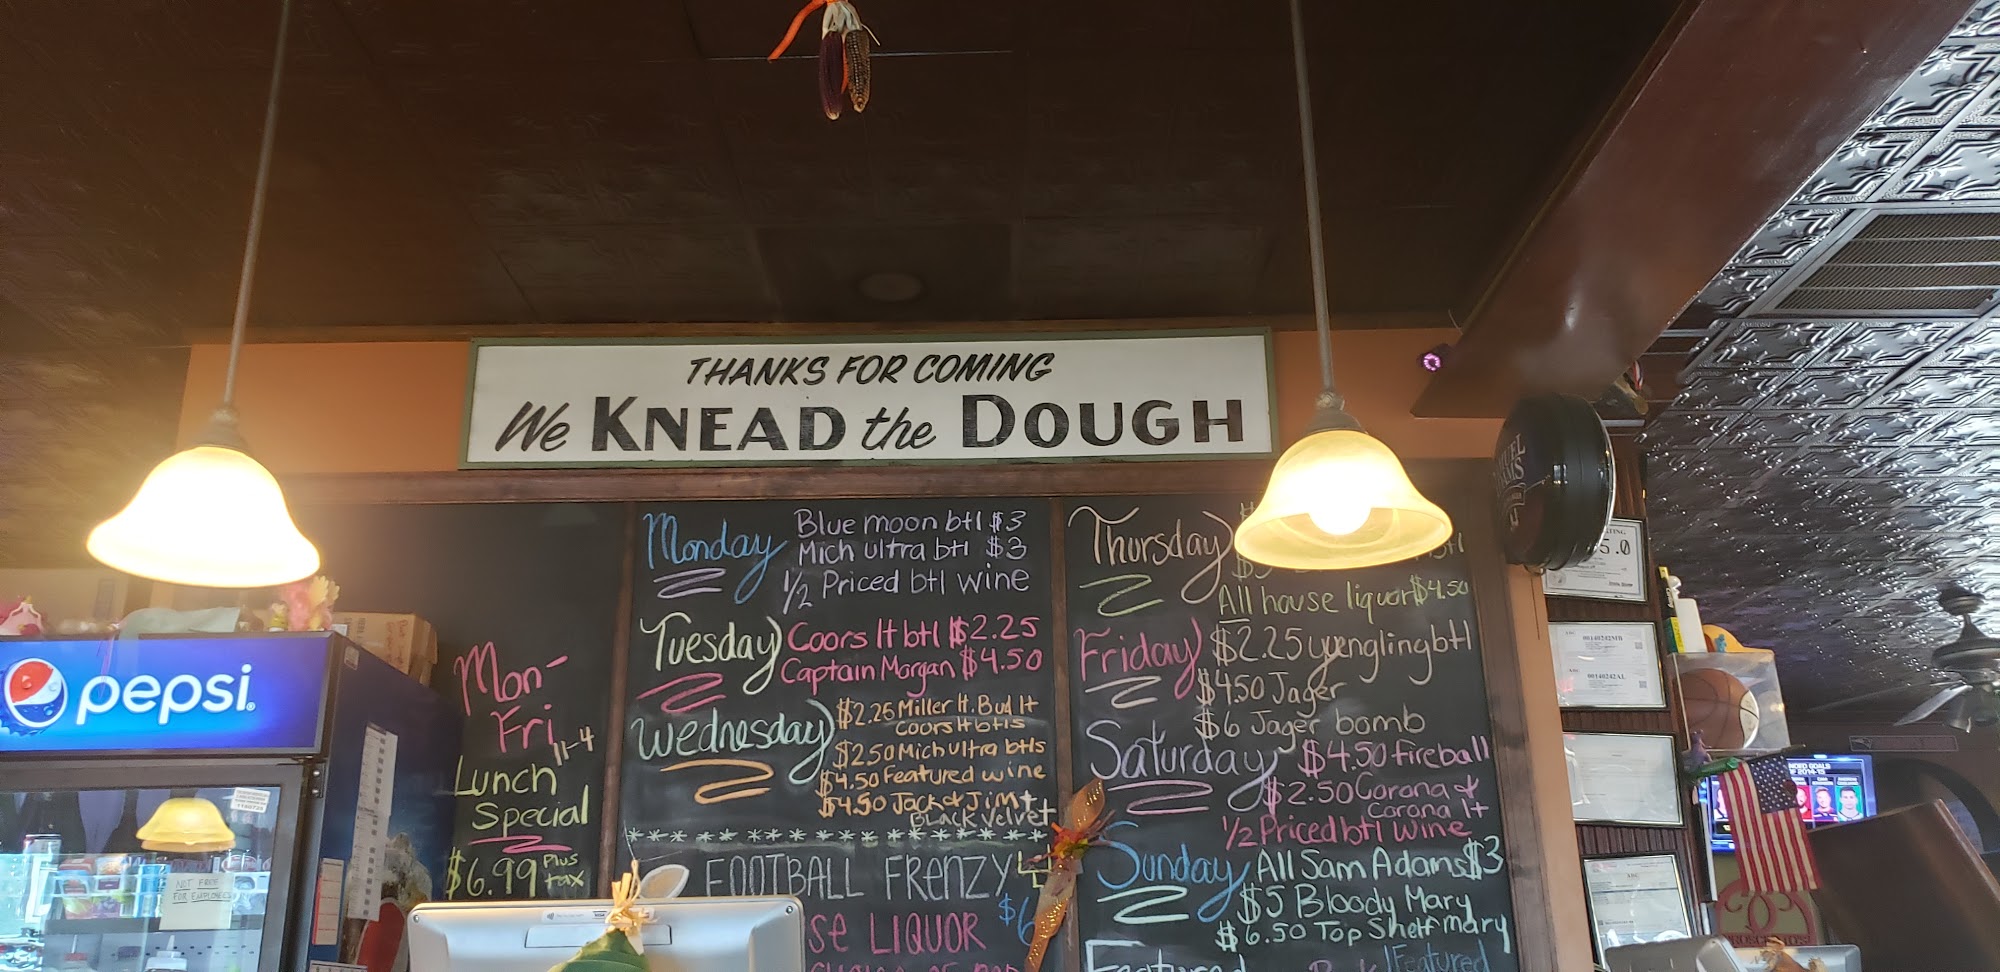 THANKS FOR COMING
We KNEAD the DOUGH
pepsi
NOT FREE
FOR EMPLOYEES
Mon-
Fri
11-4
Lunch
Special
$6.99 Plus
tax
Monday
Blue moon btl $3
Mich ultra btl $3
1/2 Priced btl wine
Tuesday
Coors lt btl $2.25
Captain Morgan $4.50
Wednesday
$2.25 Miller lt. Bud lt
Coors lt btls
$2.50 Mich ultra btls
$4.50 Featured wine
$4.50 Jack & Jim +
Black Velvet
FOOTBALL FRENZY
SE LIQUOR $6
Thursday
All house liquor $4.50
Friday
$2.25 yuengling btl
$4.50 Jager
$6 Jager bomb
Saturday
$4.50 fireball
$2.50 Corona &
Corona lt
1/2 Priced btl wine
Sunday
All Sam Adams $3
$5 Bloody Mary
$6.50 Top Shelf mary
Featured
Featured
5.0
00140242MB
00140242AL
OF 2014-15